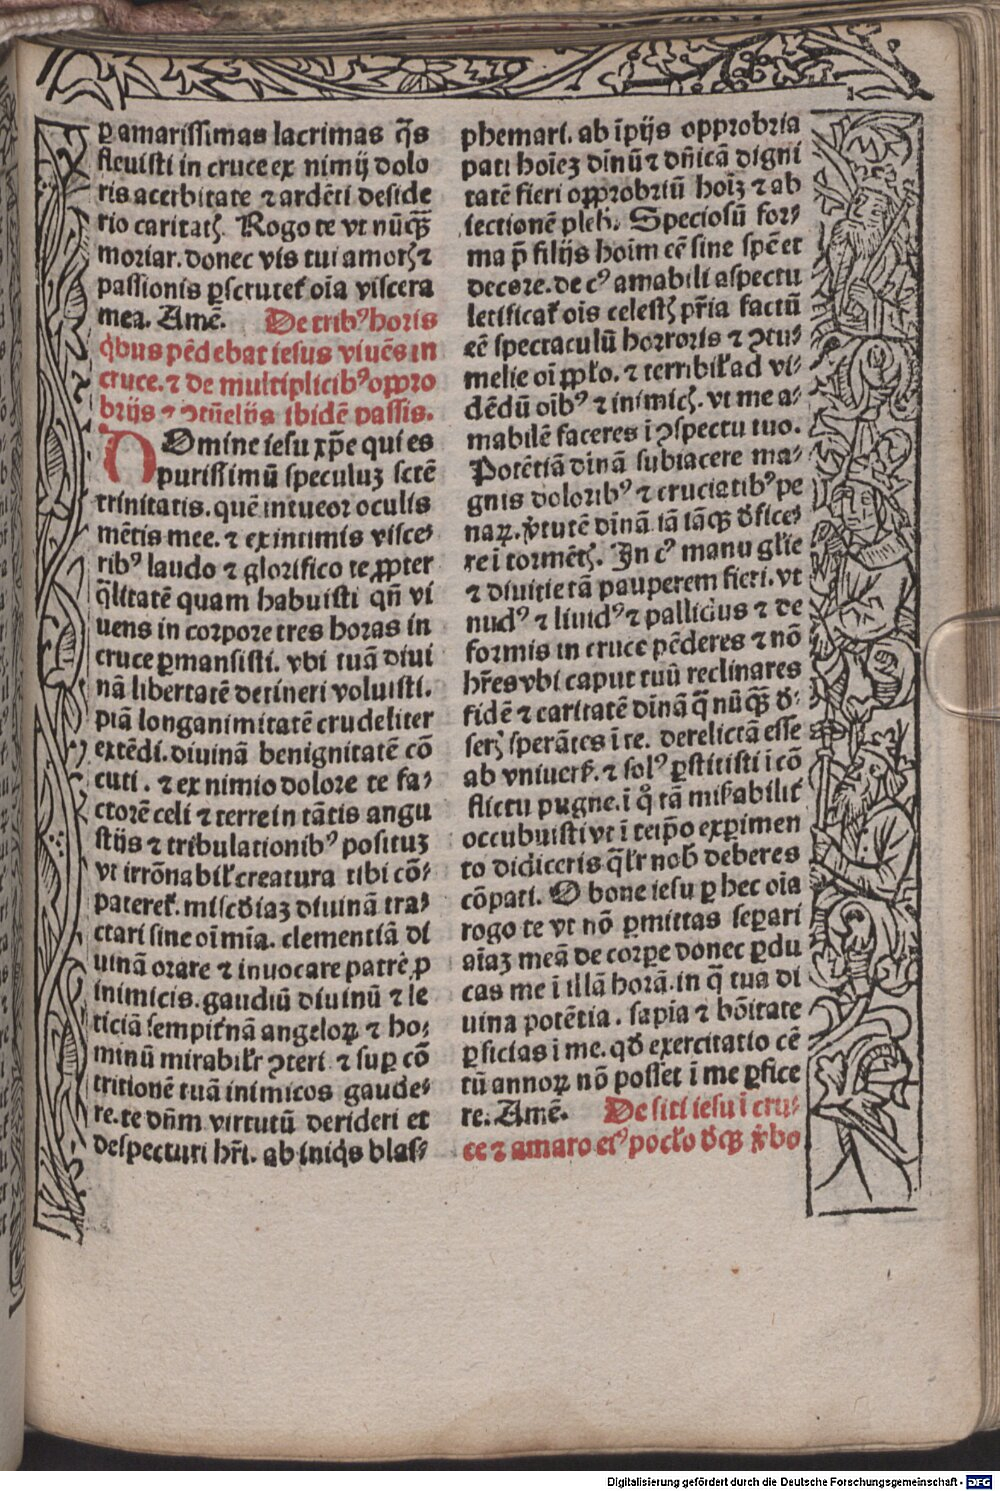 ꝑ amarissimas lacrimas q̄s
fleuisti in cruce ex nimij dolo
ris acerbitate ⁊ ardēti deside
rio caritatꝭ. Rogo te vt nūqꝫ
moriar. donec vis tui amorꝭ ⁊
passionis ꝑscrutet᷑ oīa viscera
mea. Amē. De tribꝰ horis
q̇bus pēdebat iesus viuēs in
cruce. ⁊ de multiplicibꝰ oꝓro
brijs ⁊ ꝯtūelijs ibidē passis.
DOmine iesu xp̄e qui es
purissimū speculuꝫ sctē
trinitatis. quē intueor oculis
mētis mee. ⁊ ex intimis visce⸗
ribꝰ laudo ⁊ glorifico te ꝓpter
q̄litatē quam habuisti qn̄ vi
uens in corpore tres horas in
cruce ꝑmansisti. vbi tuā diui
nā libertatē detineri voluisti.
piā longanimitatē crudeliter
extēdi. diuinā benignitatē cō
cuti. ⁊ ex nimio dolore te fa⸗
ctorē celi ⁊ terre in tātis angu
stijs ⁊ tribulationibꝰ posituꝫ
vt irrōnabil̓ creatura tibi cō⸗
pateret᷑. misc̄diaꝫ diuinā tra⸗
ctari sine oī mīa. clementiā di
uinā orare ⁊ inuocare patrē ꝓ
inimicis. gaudiū diuinū ⁊ le
ticiā sempit᷑nā angeloꝝ ⁊ ho⸗
minū mirabil̓r ꝯteri ⁊ suꝑ cō
tritionē tuā inimicos gaude⸗
re. te dn̄m virtutū derideri et
despectui hr̄i. ab iniq̇s blas⸗
phemari. ab īpijs opprobria
pati hoīeꝫ dīnū ⁊ dn̄icā digni
tatē fieri oꝓrobriū hoīꝫ ⁊ ab
iectionē plebꝭ. Speciosū for⸗
ma p̄ filijs hoim cē sine spē et
decore. de cꝰ amabili aspectu
letificat᷑ ois celestꝭ pr̄ia factū
eē spectaculū horroris ⁊ ꝯtu⸗
melie oī ꝓpl̓o. ⁊ terribil̓ ad vi⸗
dēdū oībꝰ ⁊ inimicꝭ. vt me a⸗
mabilē faceres ī ꝯspectu tuo.
Potētiā dīnā subiacere ma⸗
gnis doloribꝰ ⁊ cruciatibꝰ pe
naꝝ. v̓tutē dīnā iā iāqꝫ d̓fice⸗
re ī tormētꝭ. In cꝰ manu gl̓ie
⁊ diuitie tā pauperem fieri. vt
nudꝰ ⁊ liuidꝰ ⁊ pallidus ⁊ de
formis in cruce pēderes ⁊ nō
hr̄es vbi caput tuū reclinares
fidē ⁊ caritatē dīnā q̄ nūqꝫ d̓⸗
serꝭ sperātes ī te. derelictā esse
ab vniuers̓. ⁊ solꝰ ꝑstitisti ī cō
flictu pugne. ī q̊ tā mirabilit᷑
occubuisti vt ī teip̄o experimen
to didiceris q̄l̓r nobꝭ deberes
cōpati. O bone iesu ꝑ hec oīa
rogo te vt nō ꝑmittas seꝑari
aīaꝫ meā de corꝑe donec ꝑdu
cas me ī illā horā. in q̄ tua di
uina potētia. sapīa ⁊ bōitate
ꝑficias ī me. qd̓ exercitatio cē
tū annoꝝ nō posset ī me ꝑfice
re. Amē. De siti iesu ī cru⸗
ce ⁊ amaro eiꝰ pocl̓o d̓cqꝫ v̓bo
Digitalisierung gefördert durch die Deutsche Forschungsgemeinschaft - DFG